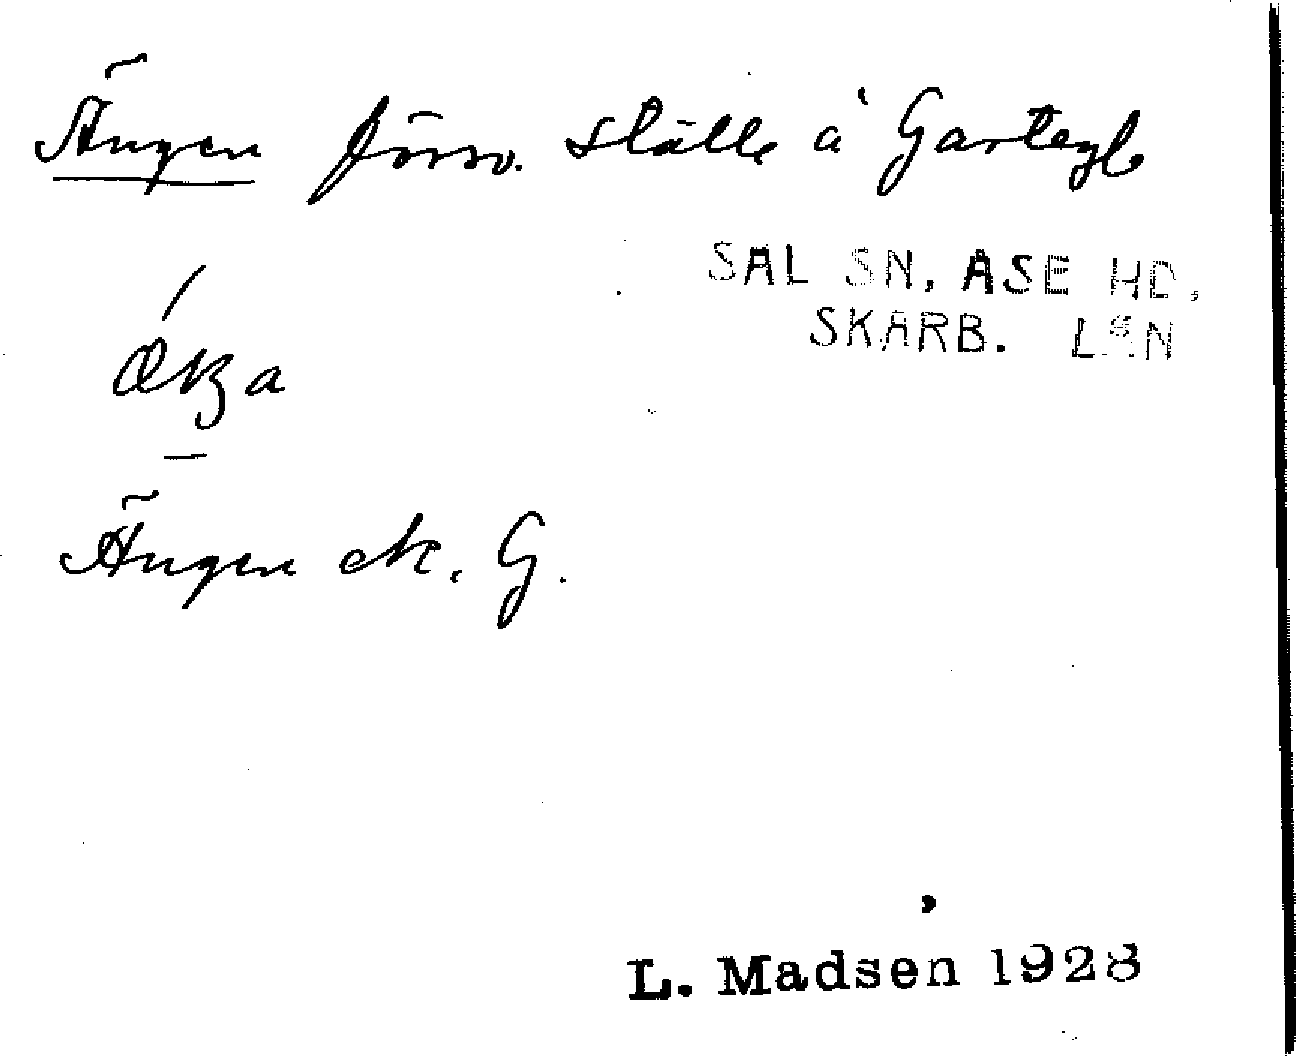 Ängen försv. ställe å Gartegb
SAL SN, ASE HD,
SKARB. LÄN
Ängen ek. G.
L. Madsen 1928